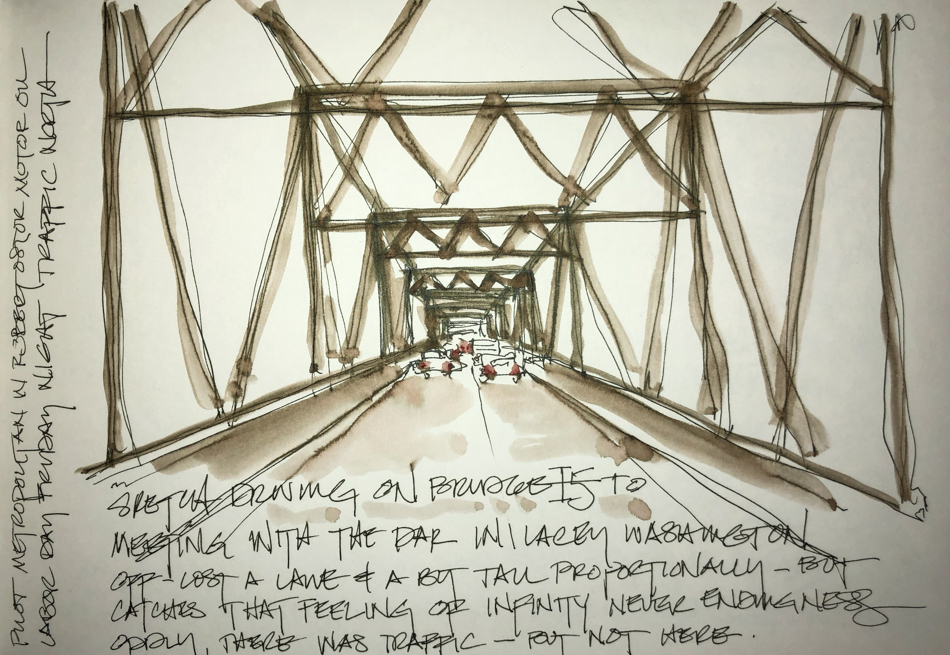 PILOT METROPOLITAN IN ROBERT OSTOR MOTOR ON
LABOR DAY FRIDAY NIGHT TRAFFIC NORTH
SKETCH DRIVING ON BRIDGE I5 TO
MEETING WITH THE DAR IN LACEY WASHINGTON
OFF - LOST A LANE & A BIT TALL PROPORTIONALLY - BUT
CATCHES THAT FEELING OF INFINITY NEVER ENDINGNESS
ODDLY, THERE WAS TRAFFIC - BUT NOT HERE.